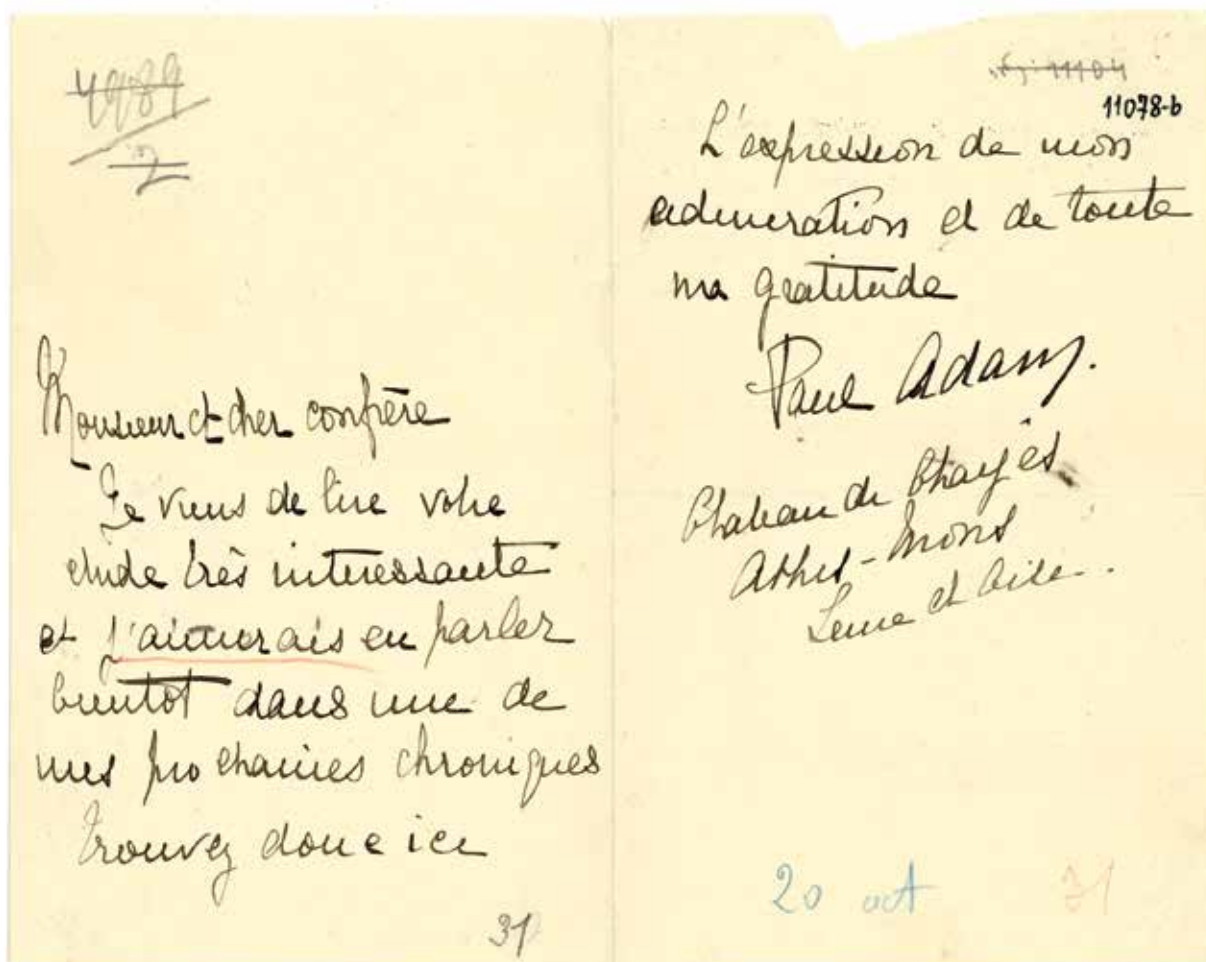 4989
2
Monsieur et cher confrère
Je viens de lire votre
etude très interessante
et j'aimerais en parler
bientot dans une de
mes prochaines chroniques
Trouvez donc ici
31
11104
11078-b
L'expression de mon
admiration et de toute
ma gratitude
Paul Adam.
Chateau de
Athis-Mons
Seine et Oise.
20 oct
31